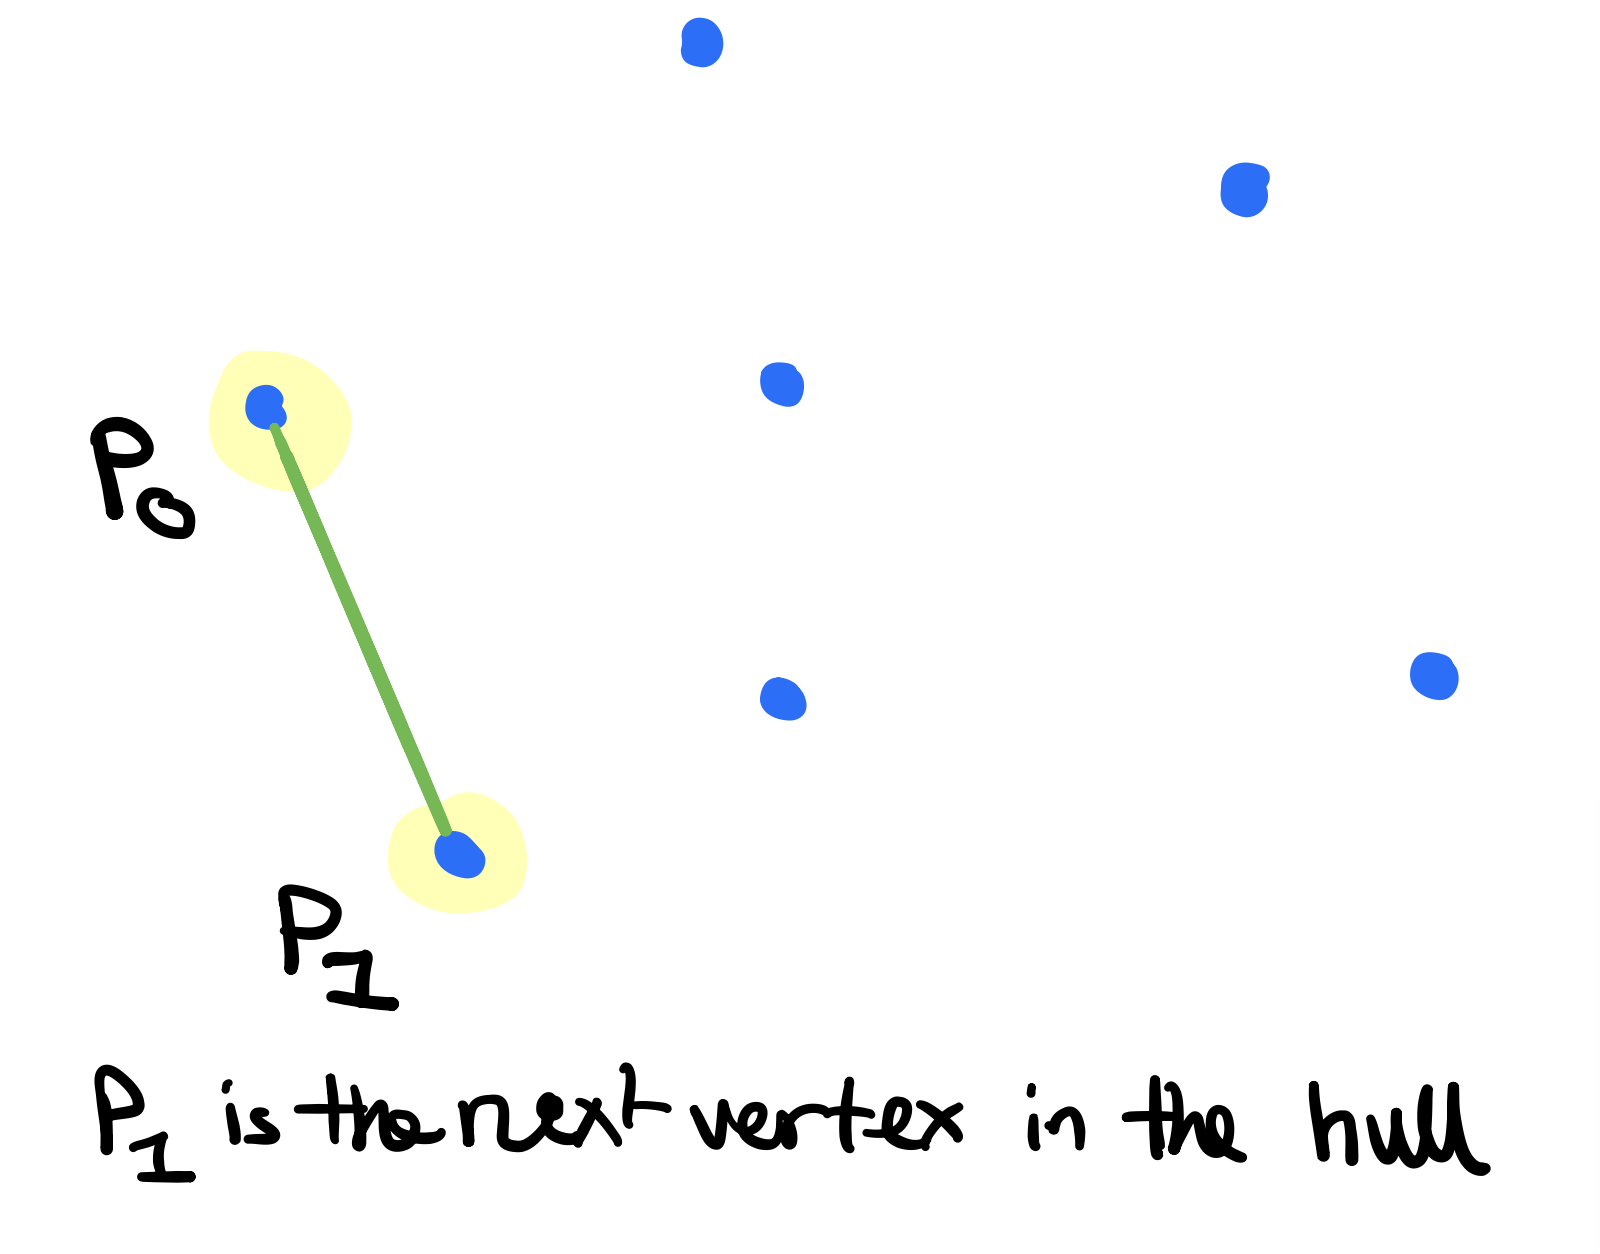 P0
P1
P1 is the next vertex in the hull